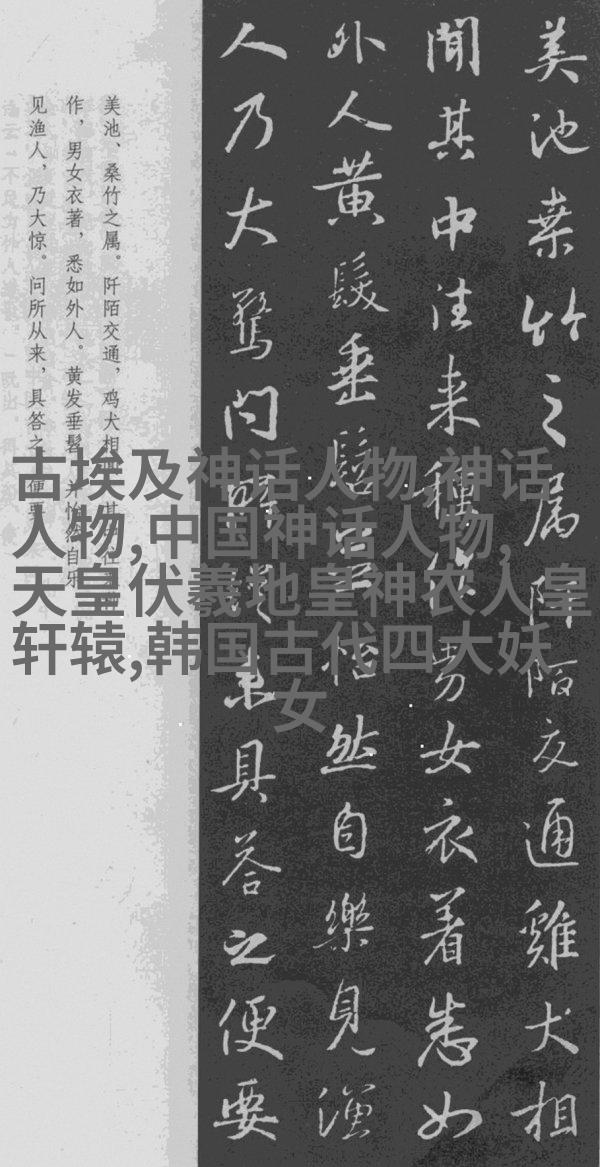 美池桒竹之属阡陌交通雞犬相
聞其中往来種作男女衣着悉如
外人黄髮垂髫並怡然自樂見漁
人乃大驚問所從来具荅之便要
美池、桑竹之属。阡陌交通,鸡犬相其往
作,男女衣著,悉如外人。黄发垂髫,并怡然自乐
见渔人,乃大惊。问所从来,具答之便要
古埃及神话人物,神话
人物,中国神话人物,
天皇伏羲地皇神农人皇
轩辕,韩国古代四大妖
女